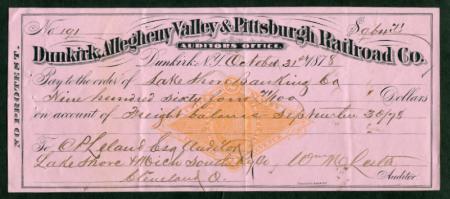 No. 191
Dunkirk, Allegheny Valley & Pittsburgh Railroad Co.
AUDITOR'S OFFICE
Dunkirk, N.Y. October 21st 1878
Pay to the order of Lake Shore Banking Co
Nine hundred sixty four /100 Dollars
on account of Freight balance September 30/78
To C P Leland Esq Auditor
Lake Shore & Mich South Ry Co
Cleveland O.
Auditor
NO PROTEST